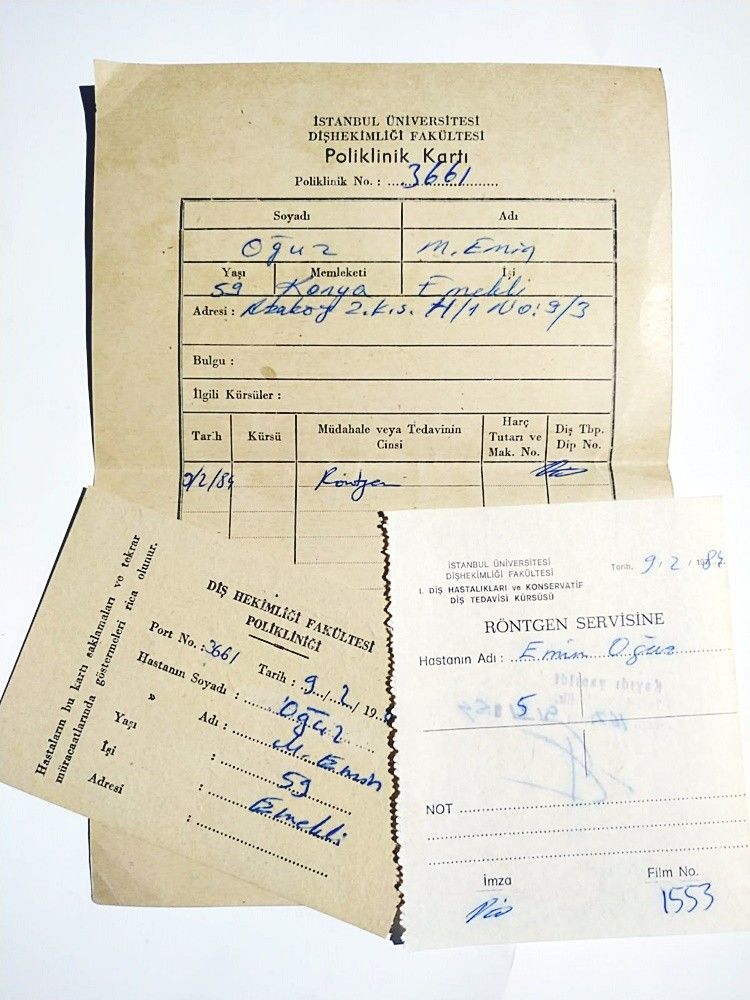 İSTANBUL ÜNİVERSİTESİ
DİŞHEKİMLİĞİ FAKÜLTESİ
Poliklinik Kartı
Poliklinik No. : 3661
Soyadı Adı
Oğuz M. Emin
Yaşı Memleketi İşi
59 Konya Emekli
Adresi : Ataköy 2. K.s. H/1 No: 9/3
Bulgu :
İlgili Kürsüler :
Tarih Kürsü Müdahale veya Tedavinin Cinsi Harç Tutarı ve Mak. No. Diş Tbp. Dip No.
9/2/84 Röntgen
Hastaların bu kartı saklamaları ve tekrar
müracaatlarında göstermeleri rica olunur.
DİŞ HEKİMLİĞİ FAKÜLTESİ
POLİKLİNİĞİ
Port No. : 3661 Tarih : 9 / 2 / 19
Hastanın Soyadı : Oğuz
» Adı : M. Emin
Yaşı : 59
İşi : Emekli
Adresi :
İSTANBUL ÜNİVERSİTESİ
DİŞHEKİMLİĞİ FAKÜLTESİ
Tarih, 9 . 2 / 1984
I. DİŞ HASTALIKLARI ve KONSERVATİF
DİŞ TEDAVİSİ KÜRSÜSÜ
RÖNTGEN SERVİSİNE
Hastanın Adı : Emin Oğuz
5
NOT
İmza Film No.
1553